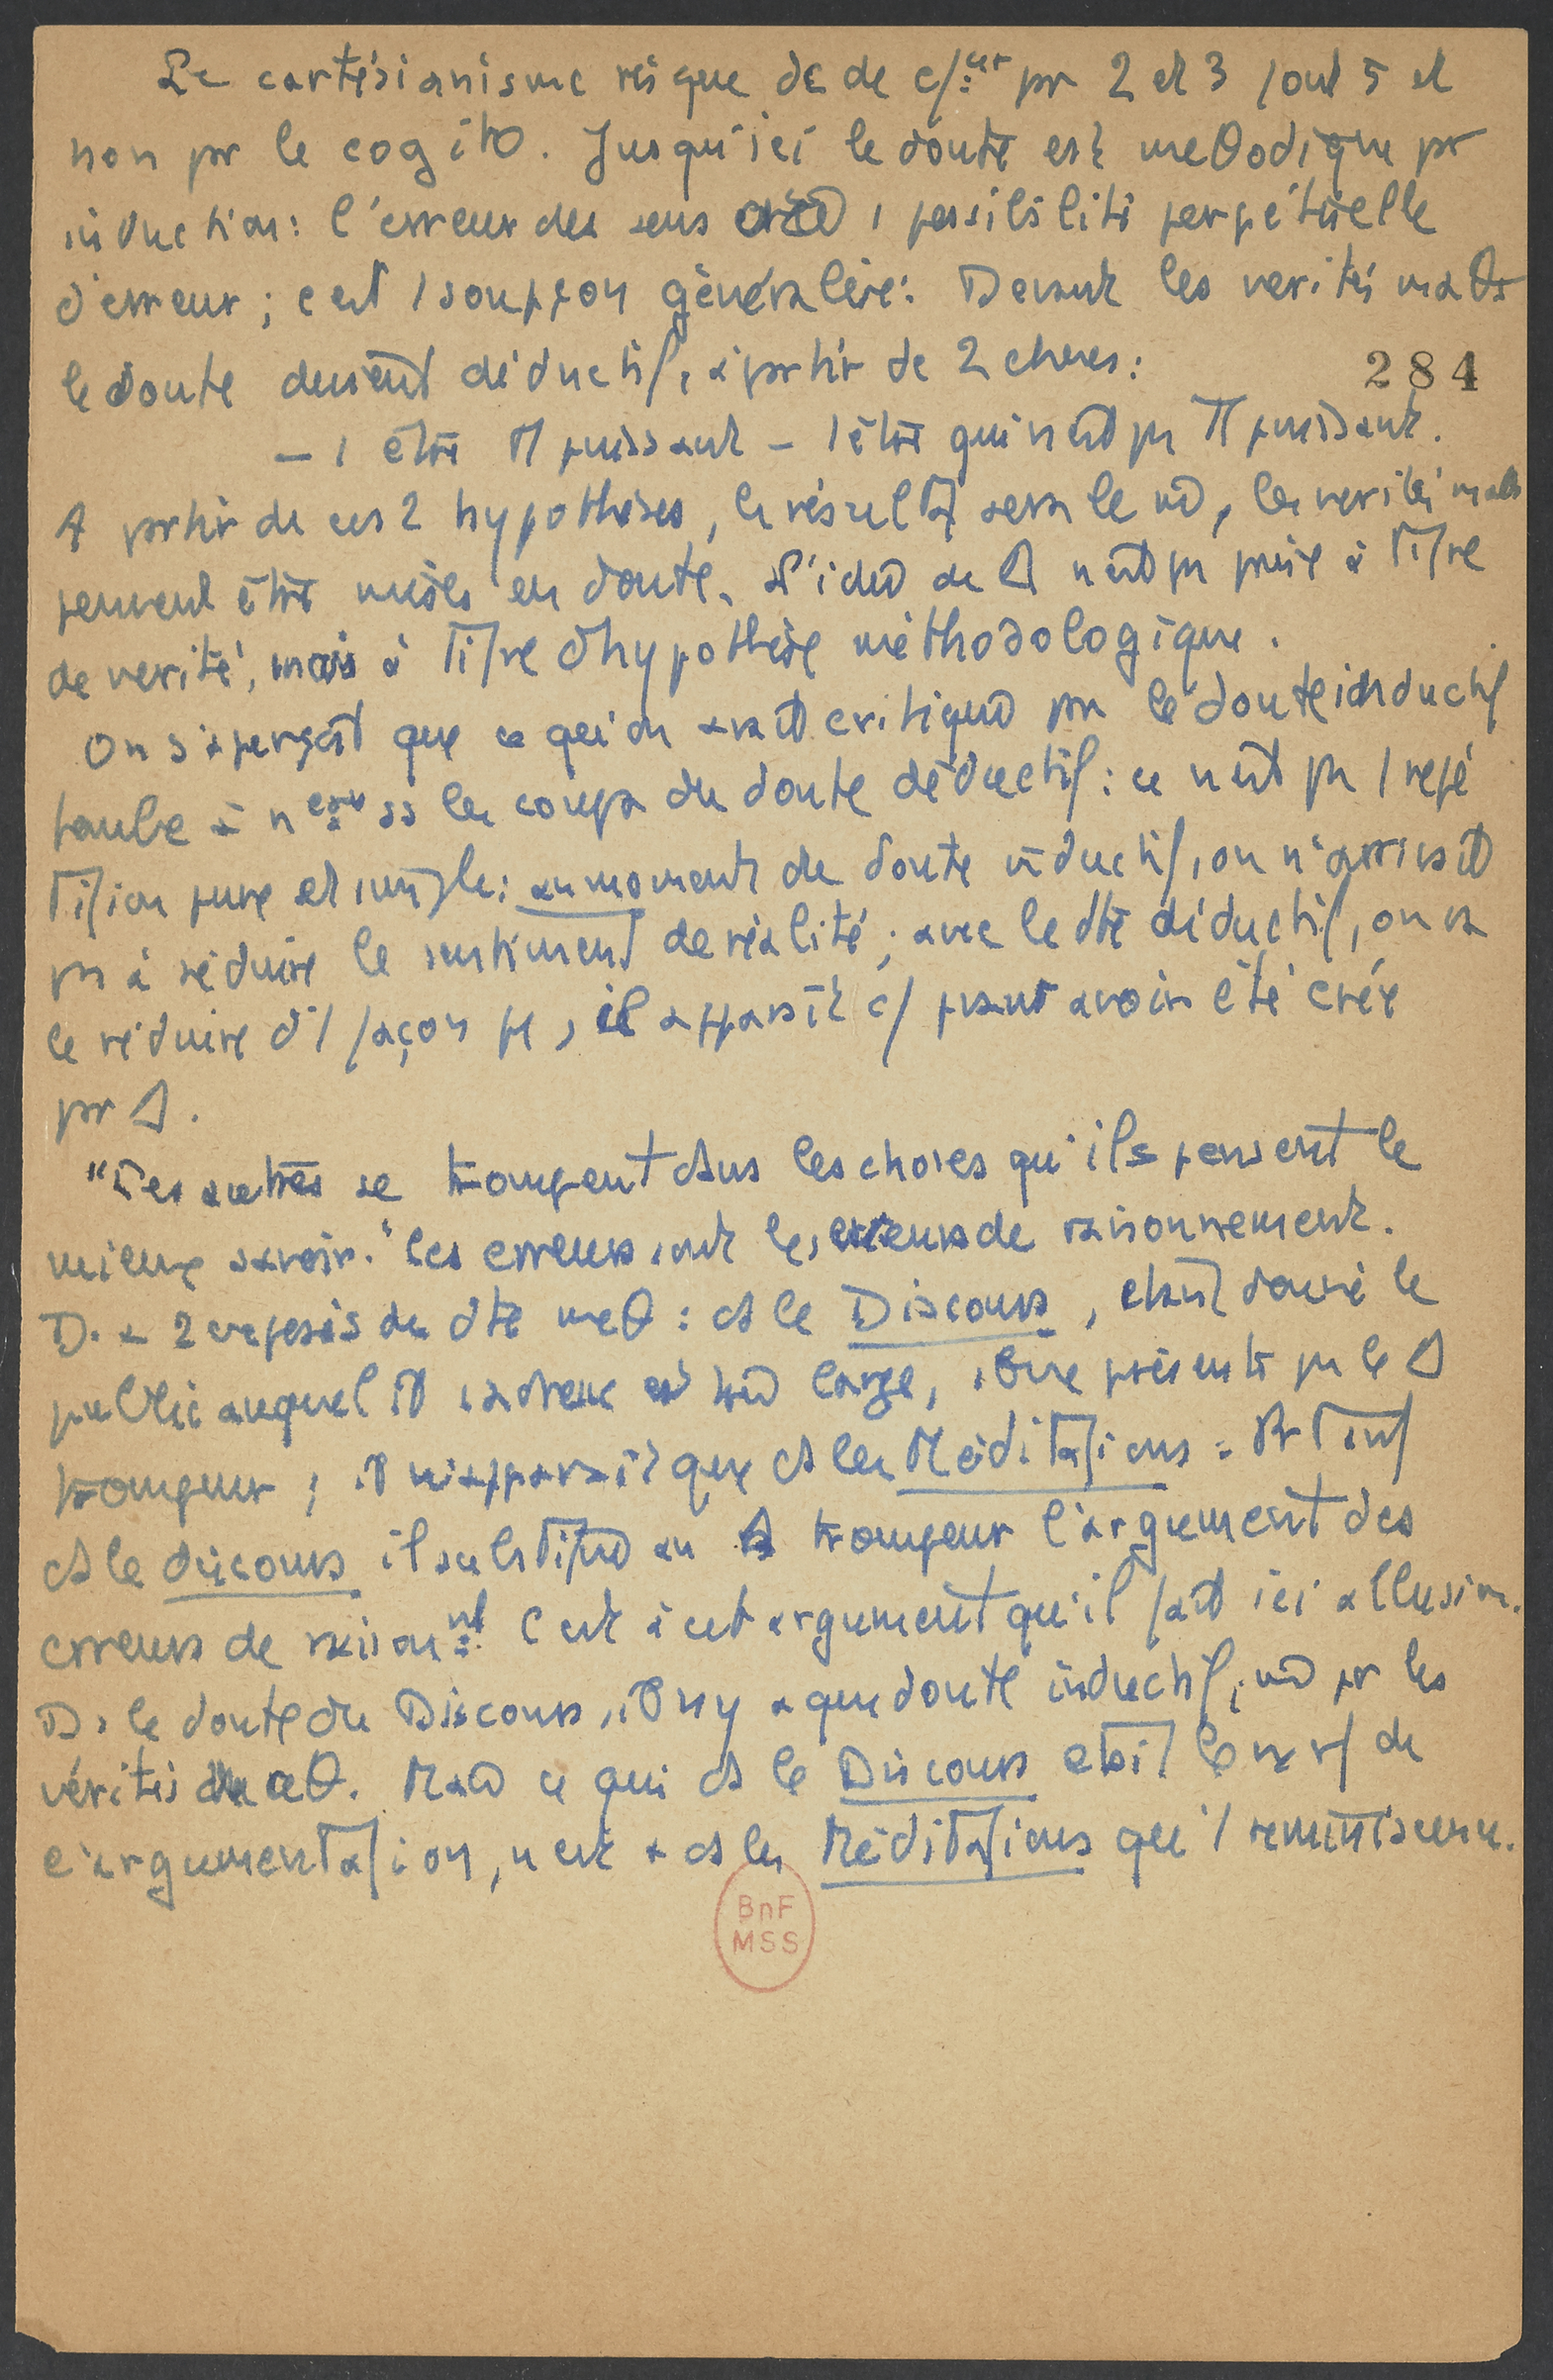 Le cartésianisme risque de de c/:er pr 2 et 3 font 5 et
non pr le cogito. Jusqu'ici le doute est meθodique pr
induction: l'erreur des sens 1 possibilité perpétuelle
d'erreur; c'est 1 soupçon généralisé. Devant les verités maθs
le doute devient déductif, à partir de 2 choses:
284
– 1 être π puissant – 1 être qui n'est pas π puissant.
A partir de ces 2 hypothèses, le résultat sera le m̂, les verités maθs
peuvent être mises en doute. L'idée de Δ n'est pas prise à titre
de verité, mais à titre d'hypothèse méthodologique.
On s'aperçoit que ce qu'on avait critiqué par le doute inductif
tombe à nveau ss les coups du doute déductif: ce n'est pas 1 repé
tition pure et simple: au moment du doute inductif, on n'arrivait
pas à réduire le sentiment de réalité; avec le dte déductif, on va
le réduire d'1 façon , il apparaît c/ pvant avoir été crée
par Δ.
"Les autres se trompent dans les choses qu'ils pensent le
mieux savoir." Les erreurs sont les erreurs de raisonnement.
D. a 2 exposés du dte meθ: ds le Discours, étant donné le
public auquel il s'adresse est très large, il ne présente pas le Δ
trompeur; il n'apparaît que ds les Méditations:
ds le discours il substitue au Δ trompeur l'argument des
erreurs de raisonnt. C'est à cet argument qu'il fait ici allusion.
Ds le doute du Discours, il n'y a que doute inductif, m̂ pr les
vérités maθ. Mais ce qui ds le Discours était le nerf de
l'argumentation, n'est + ds les Méditations qu'1 réminiscence.
BnF
MSS